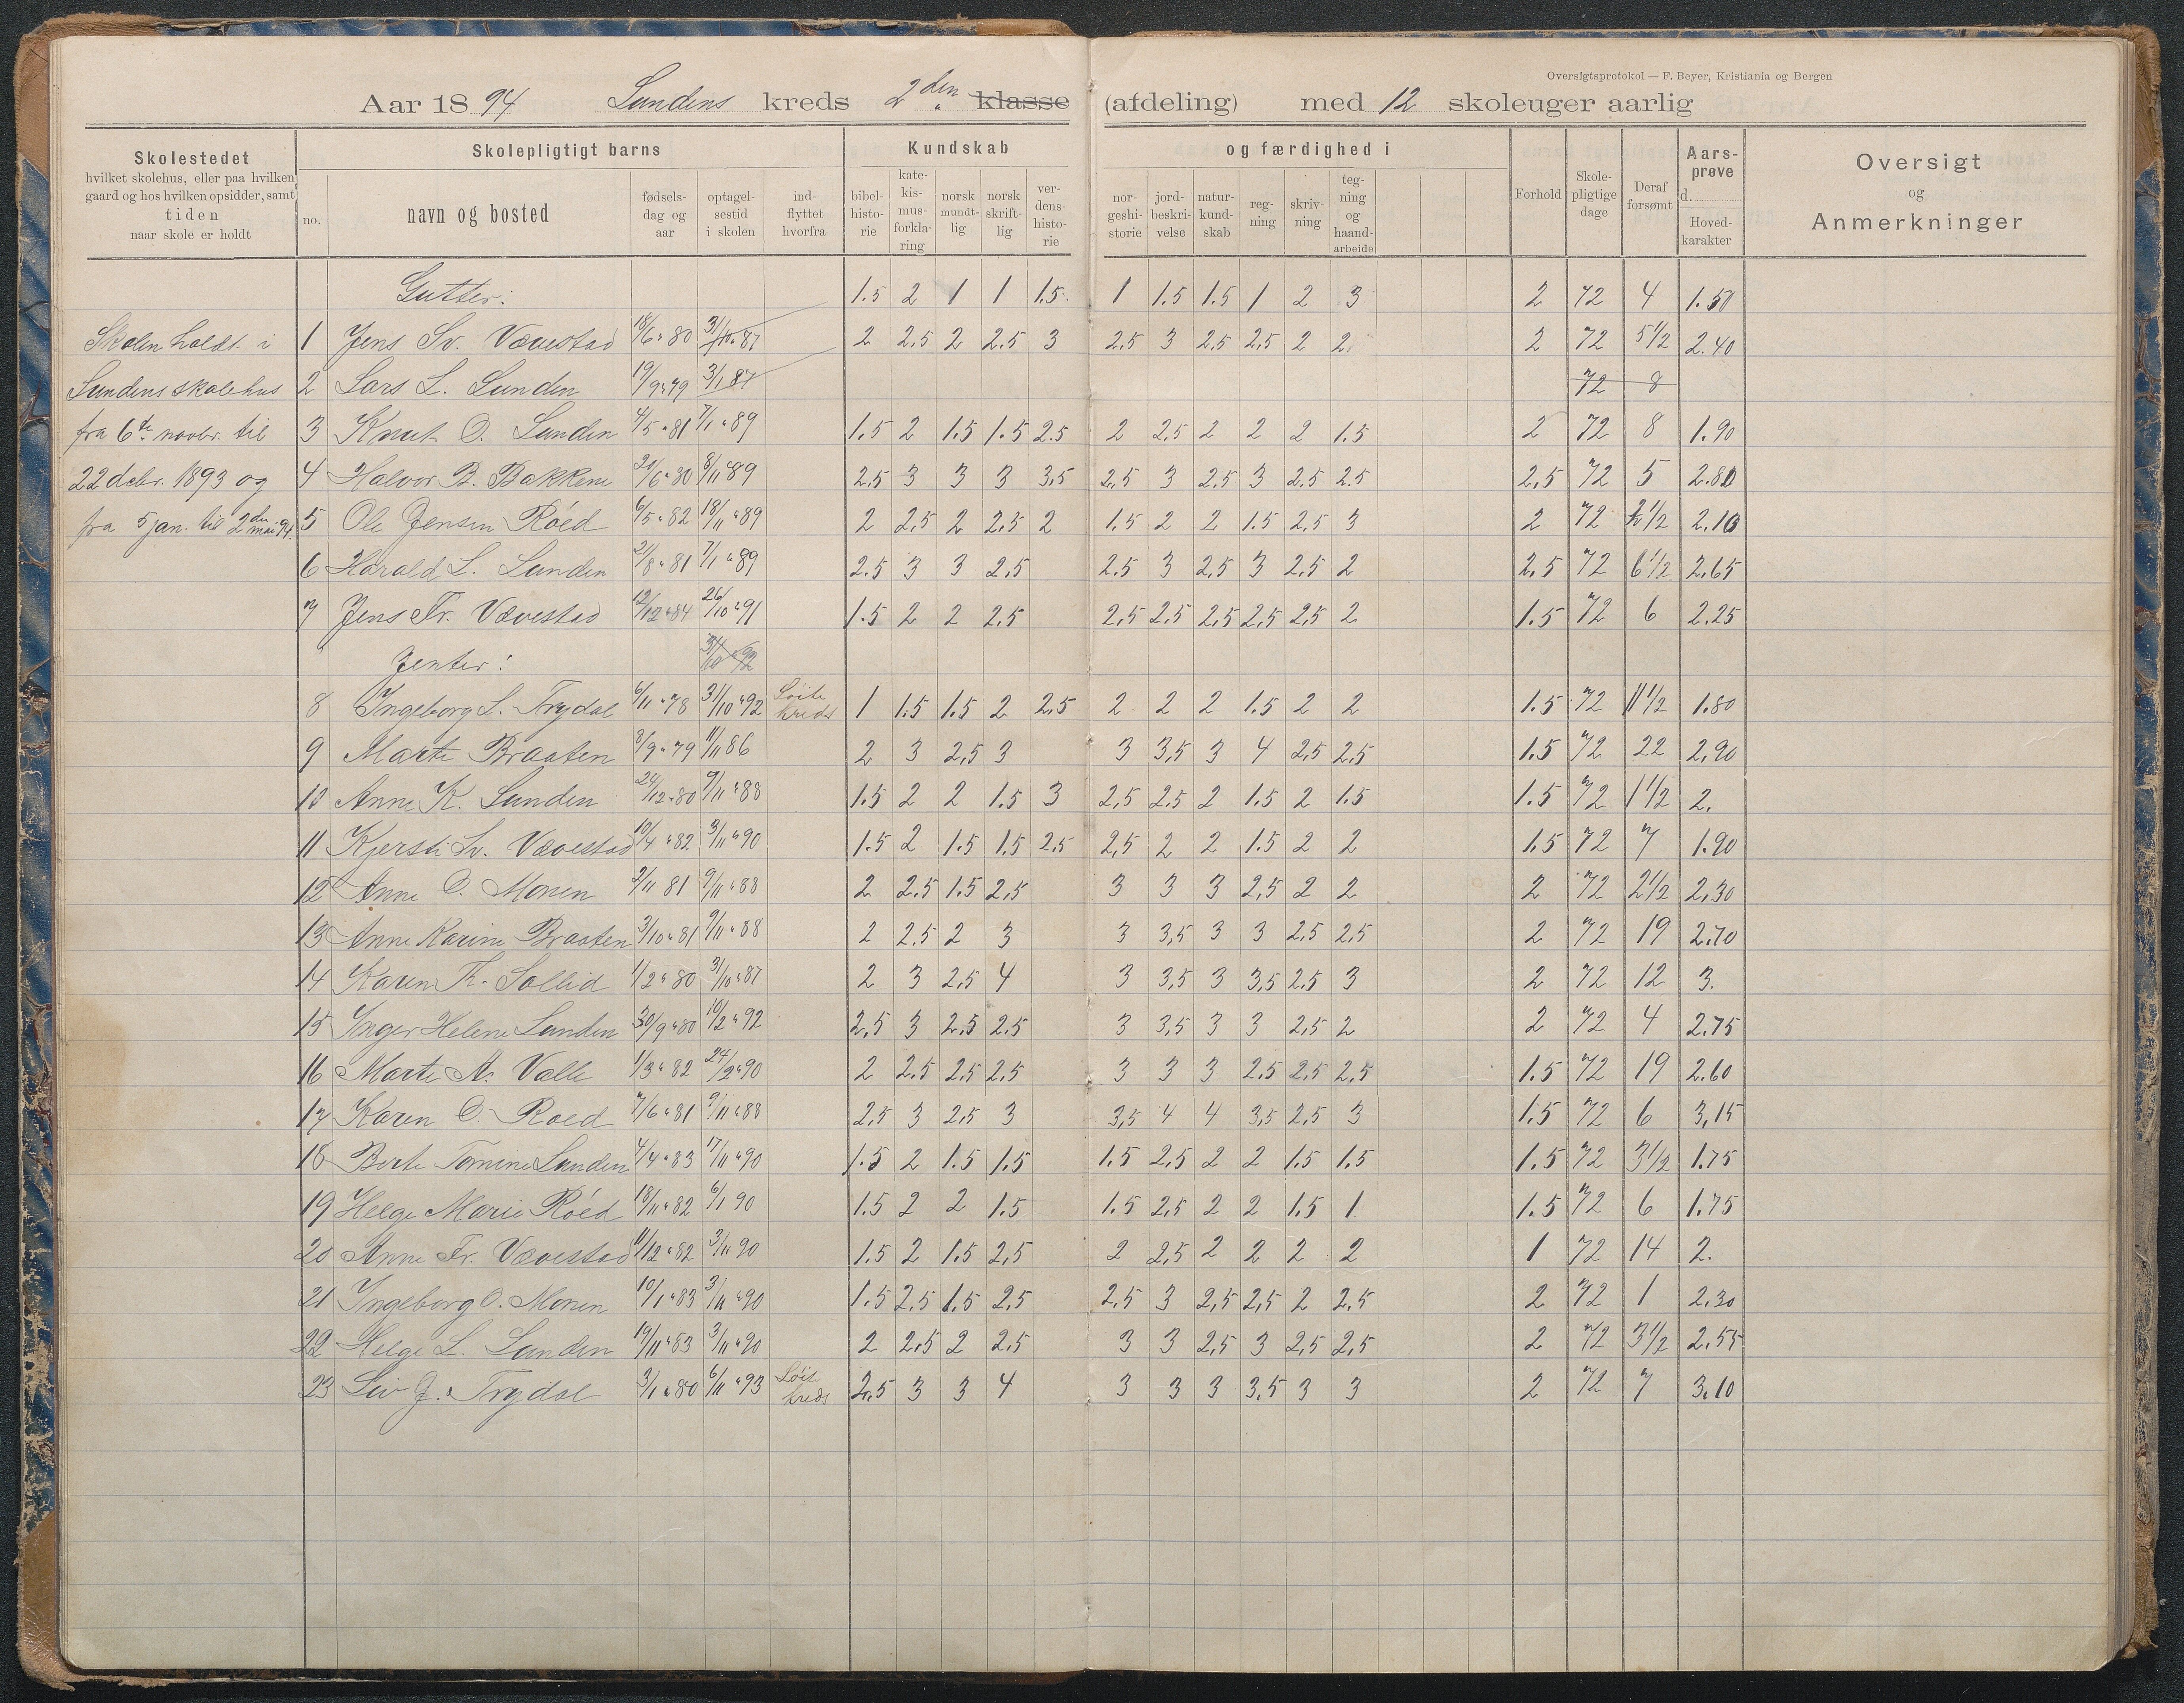 Oversigtsprotokol — F. Beyer, Kristiania og Bergen
Aar 1894 Sundens kreds 2den klasse (afdeling) med 12 skoleuger aarlig
Skolestedet
hvilket skolehus, eller paa hvilken
gaard og hos hvilken opsidder, samt
tiden
naar skole er holdt
Skolepligtigt barns
no.
navn og bosted
fødsels-
dag og
aar
optagel-
sestid
i skolen
ind-
flyttet
hvorfra
Kundskab og færdighed i
bibel-
histo-
rie
kate-
kis-
mus-
forkla-
ring
norsk
mundt-
lig
norsk
skrift-
lig
ver-
dens-
histo-
rie
nor-
geshi-
storie
jord-
beskri-
velse
natur-
kund-
skab
reg-
ning
skriv-
ning
teg-
ning
og
haand-
arbeide
Forhold
Skole-
pligtige
dage
Deraf
forsømt
Aars-
prøve
d.
Hoved-
karakter
Oversigt
og
Anmerkninger
Skolen holdt i
Sundens skolehus
fra 6te novbr. til
22 debr. 1893 og
fra 5 jan. til 2den mai 94.
Gutter: 1.5 2 1 1 1.5 1 1.5 1.5 1 2 3 2 72 4 1.50
1 Jens Sv. Vævestad 18/6 " 80 31/10 " 87 2 2.5 2 2.5 3 2.5 3 2.5 2.5 2 2 2 72 5 1/2 2.40
2 Lars L. Sunden 19/9 " 79 3/1 87 72 8
3 Knut O. Sunden 4/5 " 81 7/1 " 89 1.5 2 1.5 1.5 2.5 2 2.5 2 2 2 1.5 2 72 8 1.90
4 Halvor B. Bakkene 20/6 " 80 8/11 " 89 2.5 3 3 3 3,5 2.5 3 2.5 3 2.5 2.5 2,5 72 5 2.80
5 Ole Jensen Röed 6/5 " 82 18/11 " 89 2 2,5 2 2,5 2 1.5 2 2 1.5 2,5 3 2 72 2 1/2 2.10
6 Harald L. Sunden 21/8 " 81 7/1 " 89 2.5 3 3 2,5 2.5 3 2,5 3 2,5 2 2,5 72 6 1/2 2,65
7 Jens Fr. Vævestad 12/12 " 84 26/10 " 91 1.5 2 2 2,5 2,5 2,5 2,5 2,5 2,5 2 1.5 72 6 2.25
Jenter: 31/10 " 92
8 Ingeborg L. Trydal 6/11 " 78 31/10 " 92 Löite kreds 1 1.5 1.5 2 2,5 2 2 2 1.5 2 2 1.5 72 11 1/2 1.80
9 Marte Braaten 8/9 " 79 11/11 86 2 3 2,5 3 3 3,5 3 4 2,5 2,5 1.5 72 22 2,90
10 Anne K. Sunden 24/12 " 80 9/11 " 88 1.5 2 2 1.5 3 2,5 2,5 2 1.5 2 1.5 1.5 72 1 1/2 2.
11 Kjersti Sv. Vævestad 10/4 " 82 3/11 " 90 1.5 2 1.5 1.5 2,5 2,5 2 2 1.5 2 2 1.5 72 7 1.90
12 Anne O. Monen 2/11 81 9/11 " 88 2 2,5 1.5 2,5 3 3 3 2,5 2 2 2 72 2 1/2 2,30
13 Anne Karine Braaten 3/10 " 81 9/11 " 88 2 2,5 2 3 3 3,5 3 3 2,5 2,5 2 72 19 2,70
14 Karen K. Sollid 1/2 " 80 31/10 " 87 2 3 2,5 4 3 3,5 3 3,5 2,5 3 2 72 12 3.
15 Inger Helene Sunden 30/9 " 80 10/2 " 92 2,5 3 2,5 2,5 3 3,5 3 3 2,5 2 2 72 4 2,75
16 Marte A. Valle 1/3 " 82 24/2 " 90 2 2,5 2,5 2,5 3 3 3 2,5 2,5 2,5 1.5 72 19 2.60
17 Karen O. Roed 7/6 " 81 9/11 " 88 2,5 3 2,5 3 3,5 4 4 3,5 2,5 3 1.5 72 6 3,15
18 Berte Tomine Sunden 4/4 " 83 17/11 " 90 1.5 2 1.5 1.5 1.5 2,5 2 2 1.5 1.5 1.5 72 3 1/2 1.75
19 Helge Marie Röed 18/11 " 82 6/1 90 1.5 2 2 1.5 1.5 2,5 2 2 1.5 1 1.5 72 6 1.75
20 Anne Fr. Vævestad 11/12 " 82 3/11 90 1.5 2 1.5 2,5 2 2,5 2 2 2 2 1 72 14 2.
21 Ingeborg O. Monen 10/1 " 83 3/11 " 90 1.5 2.5 1.5 2,5 2.5 3 2,5 2,5 2 2,5 2 72 1 2.30
22 Helge L. Sunden 19/11 " 83 3/11 " 90 2 2,5 2 2,5 3 3 2,5 3 2,5 2,5 2 72 3 1/2 2.55
23 Liv J. Trydal 3/1 " 80 6/11 " 93 Löit kreds 2,5 3 3 4 3 3 3 3.5 3 3 2 72 7 3.10